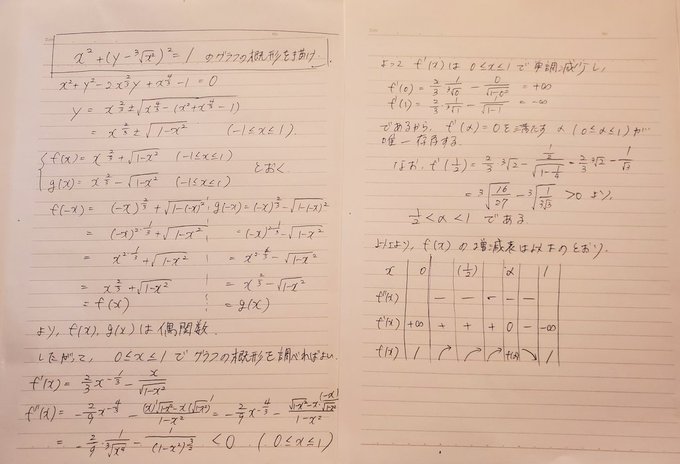 x² + (y - ³√x²)² = 1 のグラフの概形を描け.
x² + y² - 2x^{2/3}y + x^{4/3} - 1 = 0
y = x^{2/3} ± √(x^{4/3} - (x² + x^{4/3} - 1))
= x^{2/3} ± √(1-x²) (-1≤x≤1).
{ f(x) = x^{2/3} + √(1-x²) (-1≤x≤1)
g(x) = x^{2/3} - √(1-x²) (-1≤x≤1) とおく
f(-x) = (-x)^{2/3} + √(1-(-x)²) ; g(-x) = (-x)^{2/3} - √(1-(-x)²)
= (-x)^{2·1/3} + √(1-x²) = (-x)^{2·1/3} - √(1-x²)
= x^{2·1/3} + √(1-x²) = x^{2·1/3} - √(1-x²)
= x^{2/3} + √(1-x²) = x^{2/3} - √(1-x²)
= f(x) = g(x)
より, f(x), g(x) は偶関数.
したがって, 0≤x≤1 でグラフの概形を調べればよい.
f'(x) = 2/3 x^{-1/3} - x/√(1-x²)
f''(x) = -2/9 x^{-4/3} - ((x)'√(1-x²) - x(√(1-x²))')/(1-x²) = -2/9 x^{-4/3} - (√(1-x²) - x·(-x)/√(1-x²))/(1-x²)
= -2/9 · 1/³√x⁴ - 1/(1-x²)^{3/2} < 0 . (0≤x≤1)
よって f'(x) は 0≤x≤1 で単調減少し,
f'(0) = 2/3 · 1/³√0 - 0/√(1-0²) = +∞
f'(1) = 2/3 · 1/³√1 - 1/√(1-1) = -∞
であるから, f'(α)=0 を満たす α (0≤α≤1) が
唯一存在する.
なお, f'(1/2) = 2/3 ³√2 - (1/2)/√(1-1/4) = 2/3 ³√2 - 1/√3
= ³√(16/27) - ³√(1/(3√3)) > 0 より,
1/2 < α < 1 である.
以上より, f(x) の増減表は以下のとおり.
x 0 (1/2) α 1
f''(x) - - - - -
f'(x) +∞ + + + 0 - -∞
f(x) 1 ↗ ↗ ↗ f(α) ↘ 1